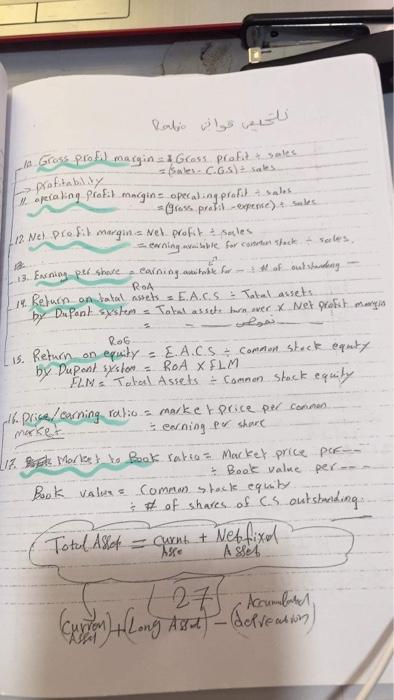 تلخيص قوانين Ratio
10. Gross profit margin = Gross profit ÷ sales
= (sales - C.G.S) ÷ sales
→ profitability
11. operating profit margin = operating profit ÷ sales
= (Gross profit - expense) ÷ sales
12. Net profit margin = Net profit ÷ sales
= earning available for common stock ÷ sales.
13. Earning per share = earning available for — ÷ # of outstanding —
RoA
14. Return on total assets = E.A.C.S ÷ Total assets
by DuPont system = Total assets turn over x Net profit margin
RoE
15. Return on equity = E.A.C.S ÷ common stock equity
by Dupont system = RoA X FLM
FLM = Total Assets ÷ Common stock equity
16. Price/earning ratio = market price per common
market ÷ earning per share
17. Market to Book ratio = Market price per ---
÷ Book value per ---
Book value = Common stock equity
÷ # of shares of C.S outstanding.
Total Asset = Current Asse + Net fixed Asset
27
(Curren Asset) + (Long Asset) - (Accumulated depreation)